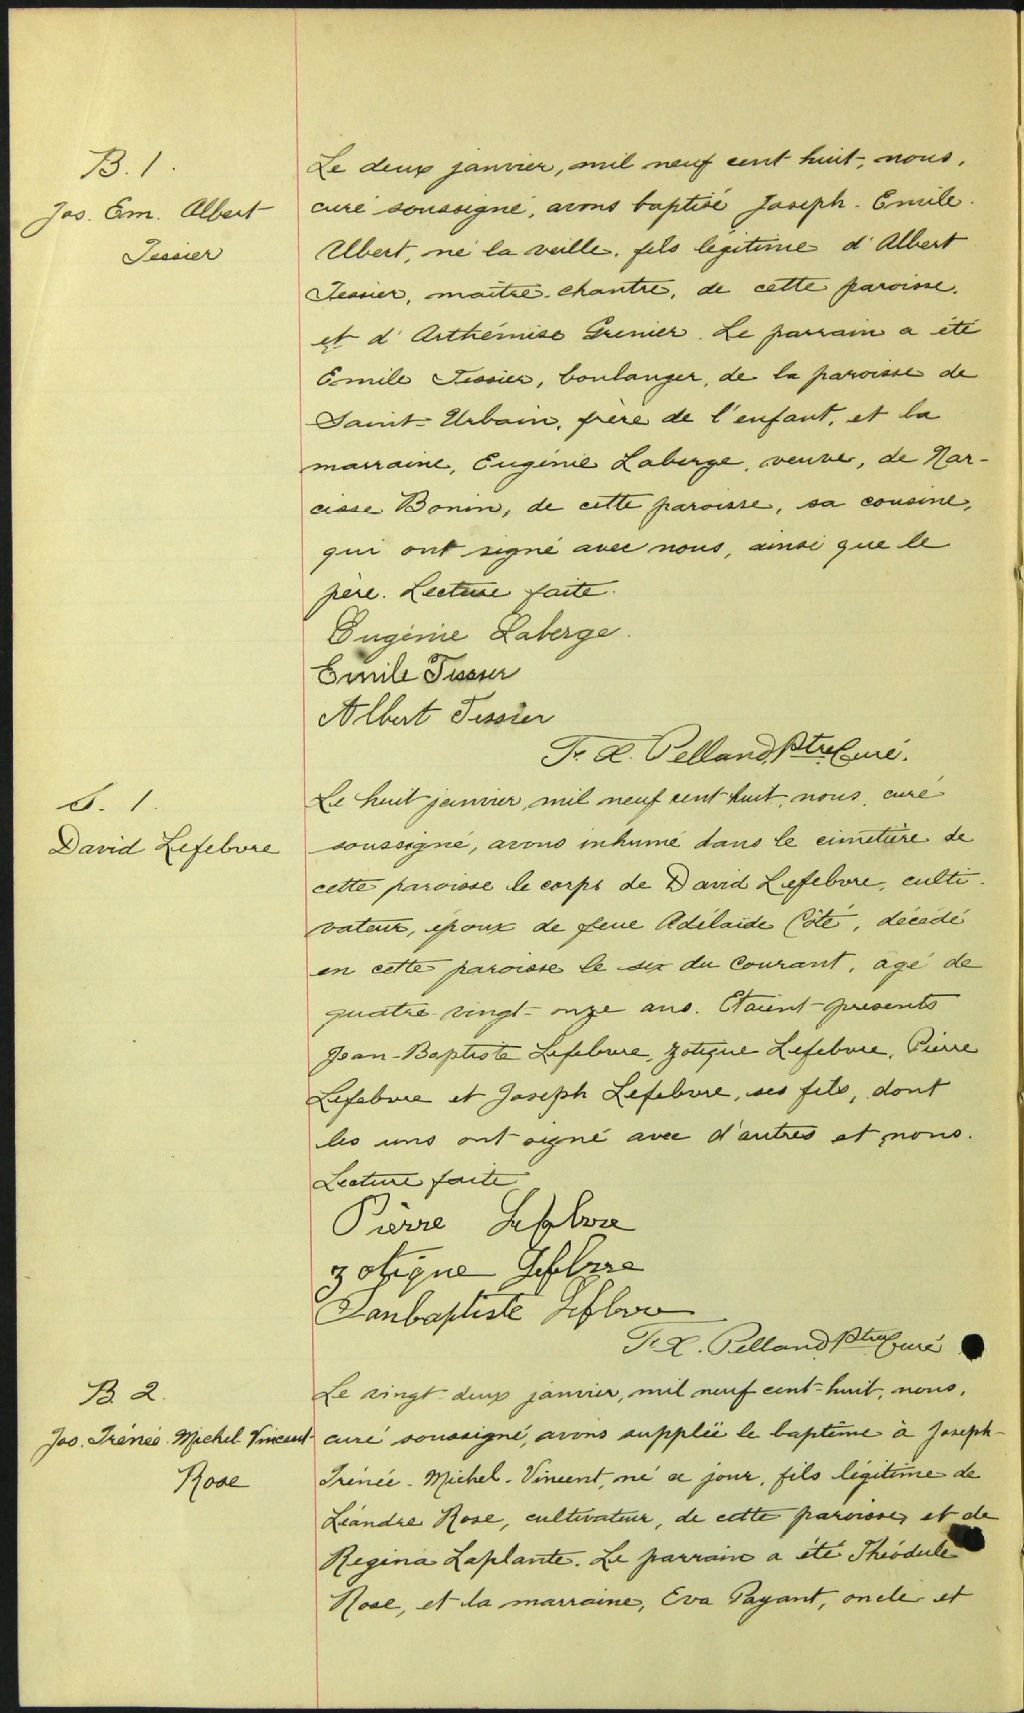 B. 1.
Jos. Em. Albert
Tessier
Le deux janvier, mil neuf cent huit, nous,
curé soussigné, avons baptisé Joseph-Emile-
Albert, né la veille, fils légitime d'Albert
Tessier, maître-chantre, de cette paroisse,
et d'Arthémise Grenier. Le parrain a été
Emile Tessier, boulanger, de la paroisse de
Saint-Urbain, frère de l'enfant, et la
marraine, Eugénie Laberge, veuve, de Nar-
cisse Bonin, de cette paroisse, sa cousine,
qui ont signé avec nous, ainsi que le
père. Lecture faite.
Eugénie Laberge.
Emile Tessier
Albert Tessier
F. X. Pelland, Ptre Curé.
S. 1.
David Lefebvre
Le huit janvier, mil neuf cent huit, nous, curé
soussigné, avons inhumé dans le cimetière de
cette paroisse le corps de David Lefebvre, culti-
vateur, époux de feue Adélaïde Côté, décédé
en cette paroisse le six du courant, agé de
quatre-vingt-onze ans. Etaient présents
Jean-Baptiste Lefebvre, Zotique Lefebvre, Pierre
Lefebvre et Joseph Lefebvre, ses fils, dont
les uns ont signé avec d'autres et nous.
Lecture faite
Pierre Lefebvre
Zotique Lefbvre
Janbaptiste Lefbvre
F. X. Pelland, Ptre Curé
B. 2.
Jos. Irénée-Michel-Vincent
Rose
Le vingt-deux janvier, mil neuf cent-huit, nous,
curé soussigné, avons suppléé le baptême à Joseph-
Irénée-Michel-Vincent, né ce jour, fils légitime de
Léandre Rose, cultivateur, de cette paroisse, et de
Regina Laplante. Le parrain a été Théodule
Rose, et la marraine, Eva Payant, oncle et